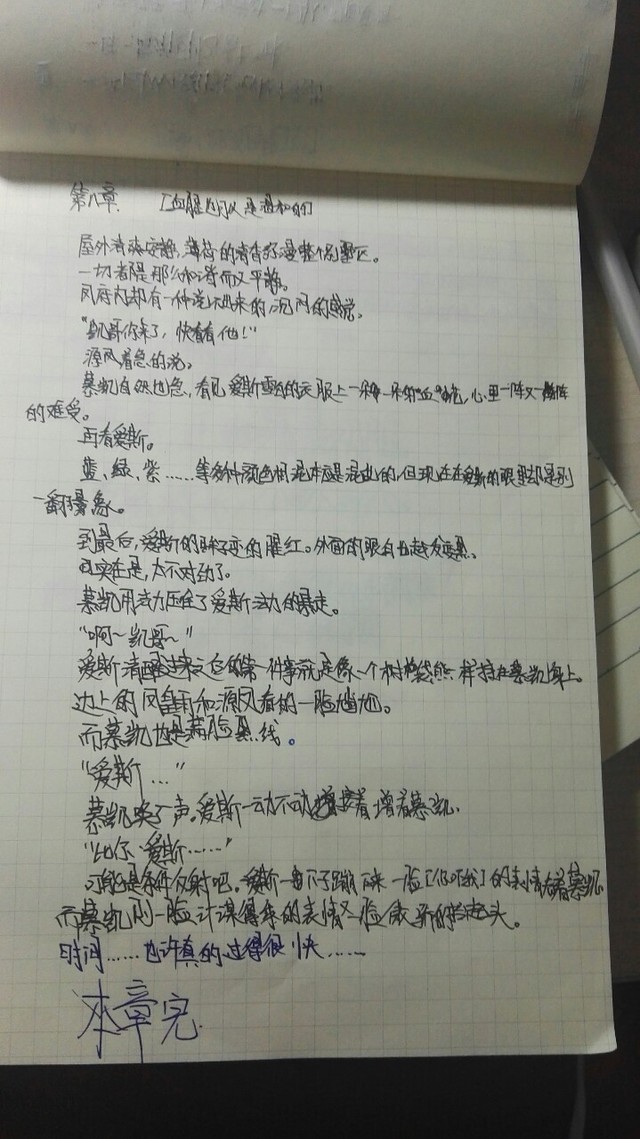 第八章 [血腥 又是温和的]
屋外清凉安静,薄荷的清香弥漫整个别墅区。
一切都是那么和谐而又平静。
风府内却有一种说不出来的,沉闷的感觉。
"凯哥你来了,快看看他!"
源风着急的说。
慕凯自然也急,看见爱斯雪白的衣服上一朵一朵的"血"花,心里一阵又一阵
的难受。
再看爱斯。
蓝、绿、紫……等多种颜色相混本应是混乱的,但现在在爱斯的眼里却是别
一翻景象。
到最后,爱斯的眸子变的腥红。外面的眼白也越发变黑。
实在是,太不对劲了。
慕凯用法力压住了爱斯法力的暴走。
"啊~凯哥~"
爱斯清醒过来之后的第一件事就是像一个树袋熊一样挂在慕凯身上。
边上的风皇和源风看的一脸尴尬。
而慕凯也是满脸黑线。
"爱斯…"
慕凯唤了声。爱斯一动不动接着蹭着慕凯.
"比尔·爱斯……"
可能是条件反射吧。爱斯一下子蹦下来一脸[你吓我]的表情看着慕凯
而慕凯则一脸计谋得逞的表情又一脸傲娇的抬起头。
时间……也许真的过得很快……
本章完.